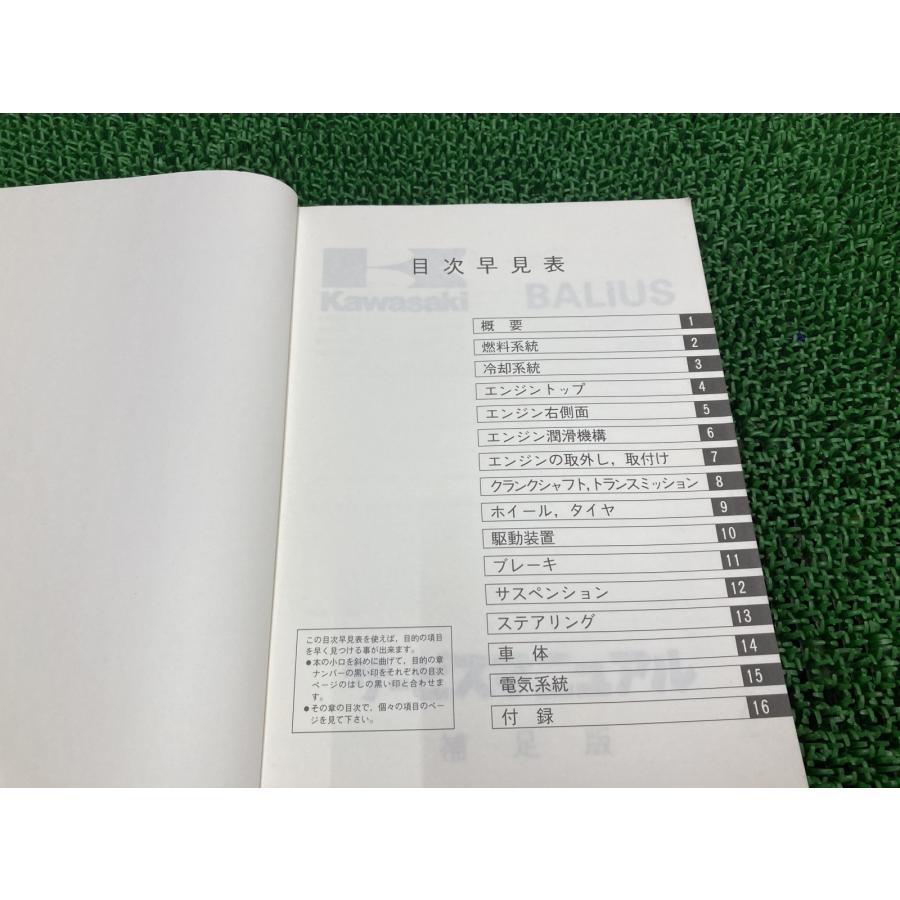 目次早見表
Kawasaki
BALIUS
概 要 1
燃料系統 2
冷却系統 3
エンジントップ 4
エンジン右側面 5
エンジン潤滑機構 6
エンジンの取外し，取付け 7
クランクシャフト,トランスミッション 8
ホイール，タイヤ 9
駆動装置 10
ブレーキ 11
サスペンション 12
ステアリング 13
車 体 14
電気系統 15
付 録 16
この目次早見表を使えば，目的の項目
を早く見つける事が出来ます。
●本の小口を斜めに曲げて，目的の章
ナンバーの黒い印をそれぞれの目次
ページのはしの黒い印と合わせま
す。
●その章の目次で，個々の項目のペー
ジを見て下さい。
補足版